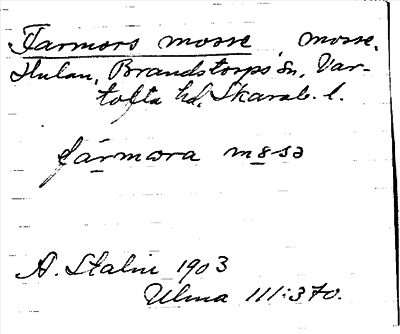 Farmors mosse, mosse,
Hulan, Brandstorps sn, Var-
tofta hd, Skarab. l.
fármora mɘsɘ
A. Stalin 1903
Ulma 111:370.